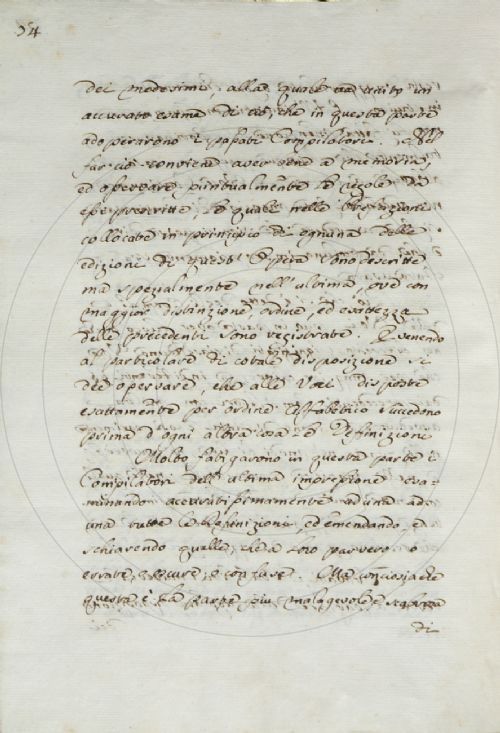 54
dei medesimi, alla quale va unito un
accurato esame di ciò, che in questa parte
adoperarono i passati Compilatori. Nel
far ciò converrà aver bene a memoria,
ed osservare puntualmente le regole di
esse prescritte, le quali nelle Prefazioni
collocate in principio di ognuna delle
edizioni di quest'Opera sono descritte
ma spezialmente nell'ultima, ove con
maggior distinzione, ordine, ed esattezza
delle precedenti sono registrate. E venendo
al particolare di cotale disposizione si
dee osservare, che alle Voci disposte
esattamente per ordine Alfabetico succedono
prima d'ogni altra cosa le Definizioni
Molto fatigarono in questa parte i
Compilatori dell'ultima impressione esa-
minando accuratissimamente ad una ad
una tutte le Definizioni, ed emendando, e
schiarendo quelle, che a loro parvero o
errate, o oscure, o confuse. Ma conciosiachè
questa è la parte più malagevole e
di